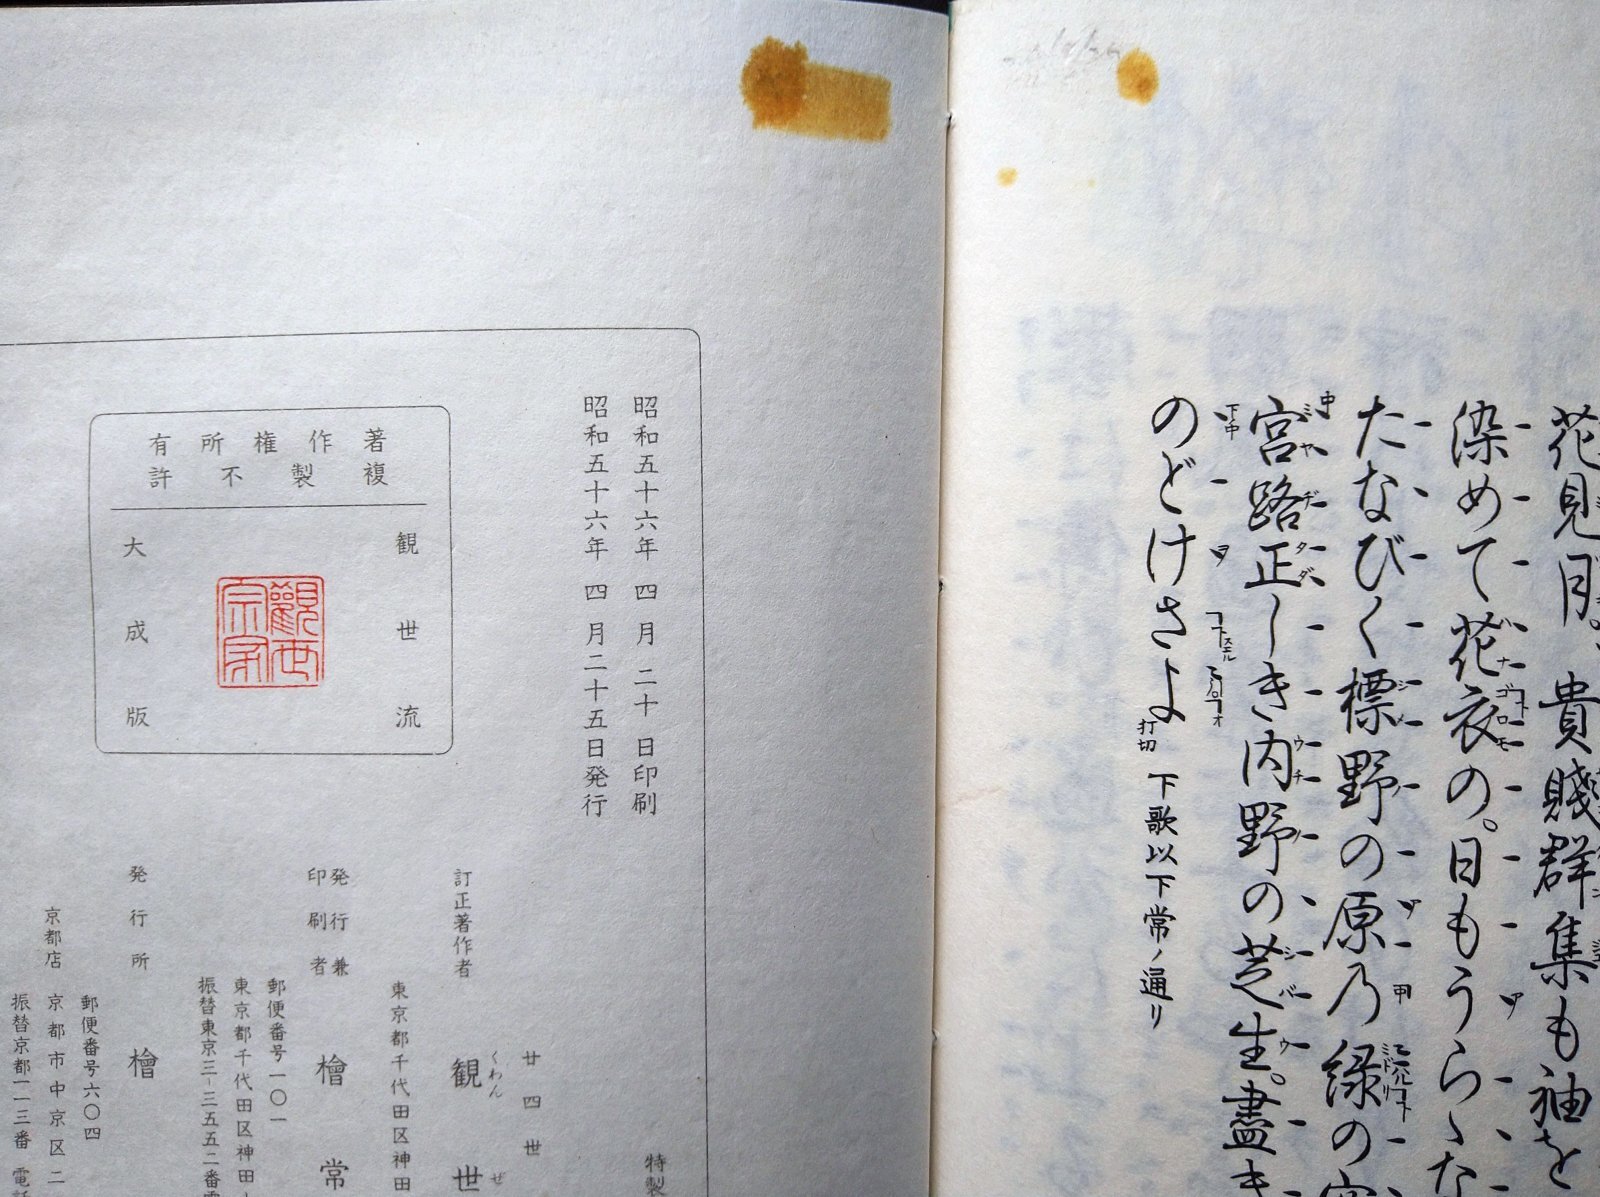 花見月。貴賤群集も袖を
染めて花衣の。日もうらゝな
たなびく標野の原乃緑の
宮路正しき内野の芝生。盡き
のどけさよ
打切
下歌以下常ノ通リ
特製
昭和五十六年 四月 二十 日印刷
昭和五十六年 四月二十五日発行
廿四世
訂正著作者 観世
くわん ぜ
東京都千代田区神田
発行兼
印刷者
檜 常
郵便番号一〇一
東京都千代田区神田
振替東京三-三五五二番
発行所 檜
郵便番号六〇四
京都店 京都市中京区二
振替京都一一三番 電話
著作権所有
複製不許
観世流
大成版
觀世宗家